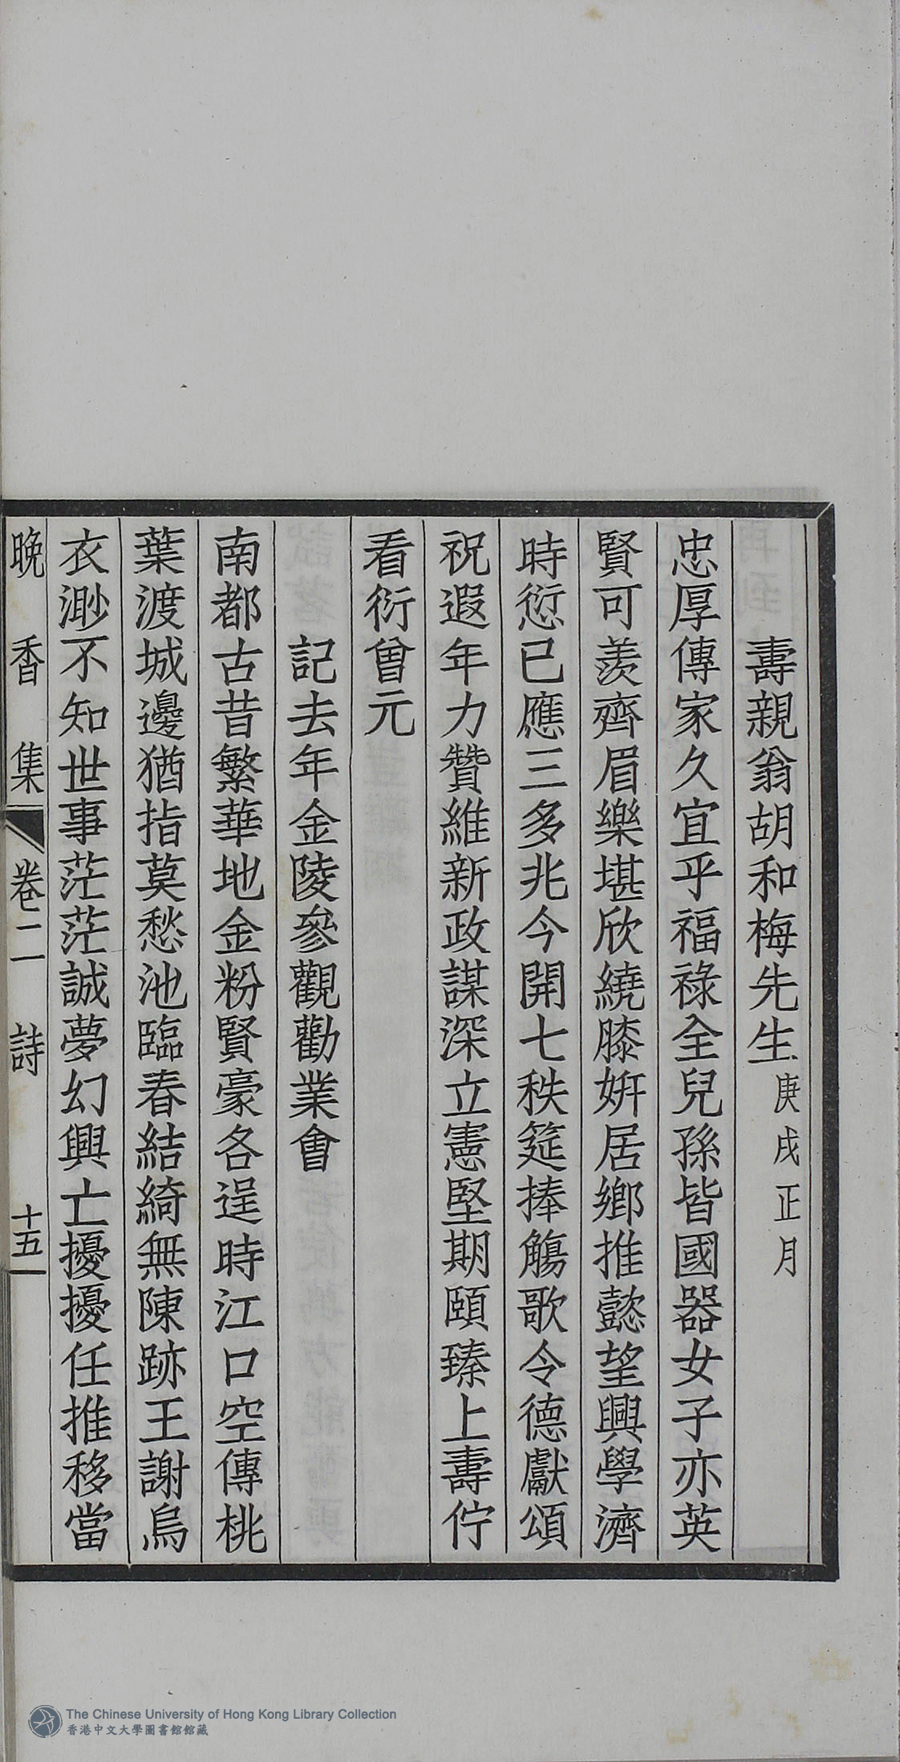 壽親翁胡和梅先生庚戌正月
忠厚傳家久宜乎福祿全兒孫皆國器女子亦英
賢可羨齊眉樂堪欣繞膝姸居鄉推懿望興學濟
時愆已應三多兆今開七秩筵捧觴歌令德獻頌
祝遐年力贊維新政謀深立憲堅期頤臻上壽佇
看衍曾元
記去年金陵參觀勸業會
南都古昔繁華地金粉賢豪各逞時江口空傳桃
葉渡城邊猶指莫愁池臨春結綺無陳跡王謝烏
衣渺不知世事茫茫誠夢幻興亡擾擾任推移當
晚香集 卷二 詩 十五
The Chinese University of Hong Kong Library Collection
香港中文大學圖書館館藏